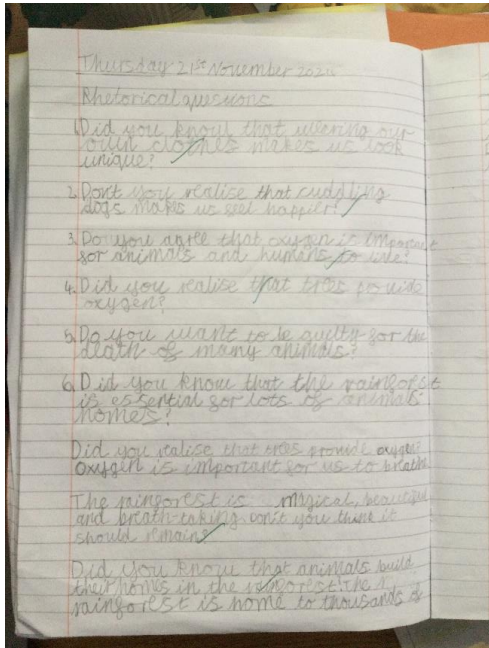 Thursday 21st November 2024
Rhetorical questions
1. Did you know that wearing our
own clothes makes us look
unique?
2. Don't you realise that cuddling
dogs makes us feel happier?
3. Do you agree that oxygen is important
for animals and humans to live?
4. Did you realise that trees provide
oxygen?
5. Do you want to be guilty for the
death of many animals?
6. Did you know that the rainforest
is essential for lots of animals
homes?
Did you realise that trees provide oxygen
Oxygen is important for us to breath
The rainforest is magical, beautiful
and breath-taking don't you think it
should remain
Did you know that animals build
their homes in the rainforest. The
rainforest is home to thousands of